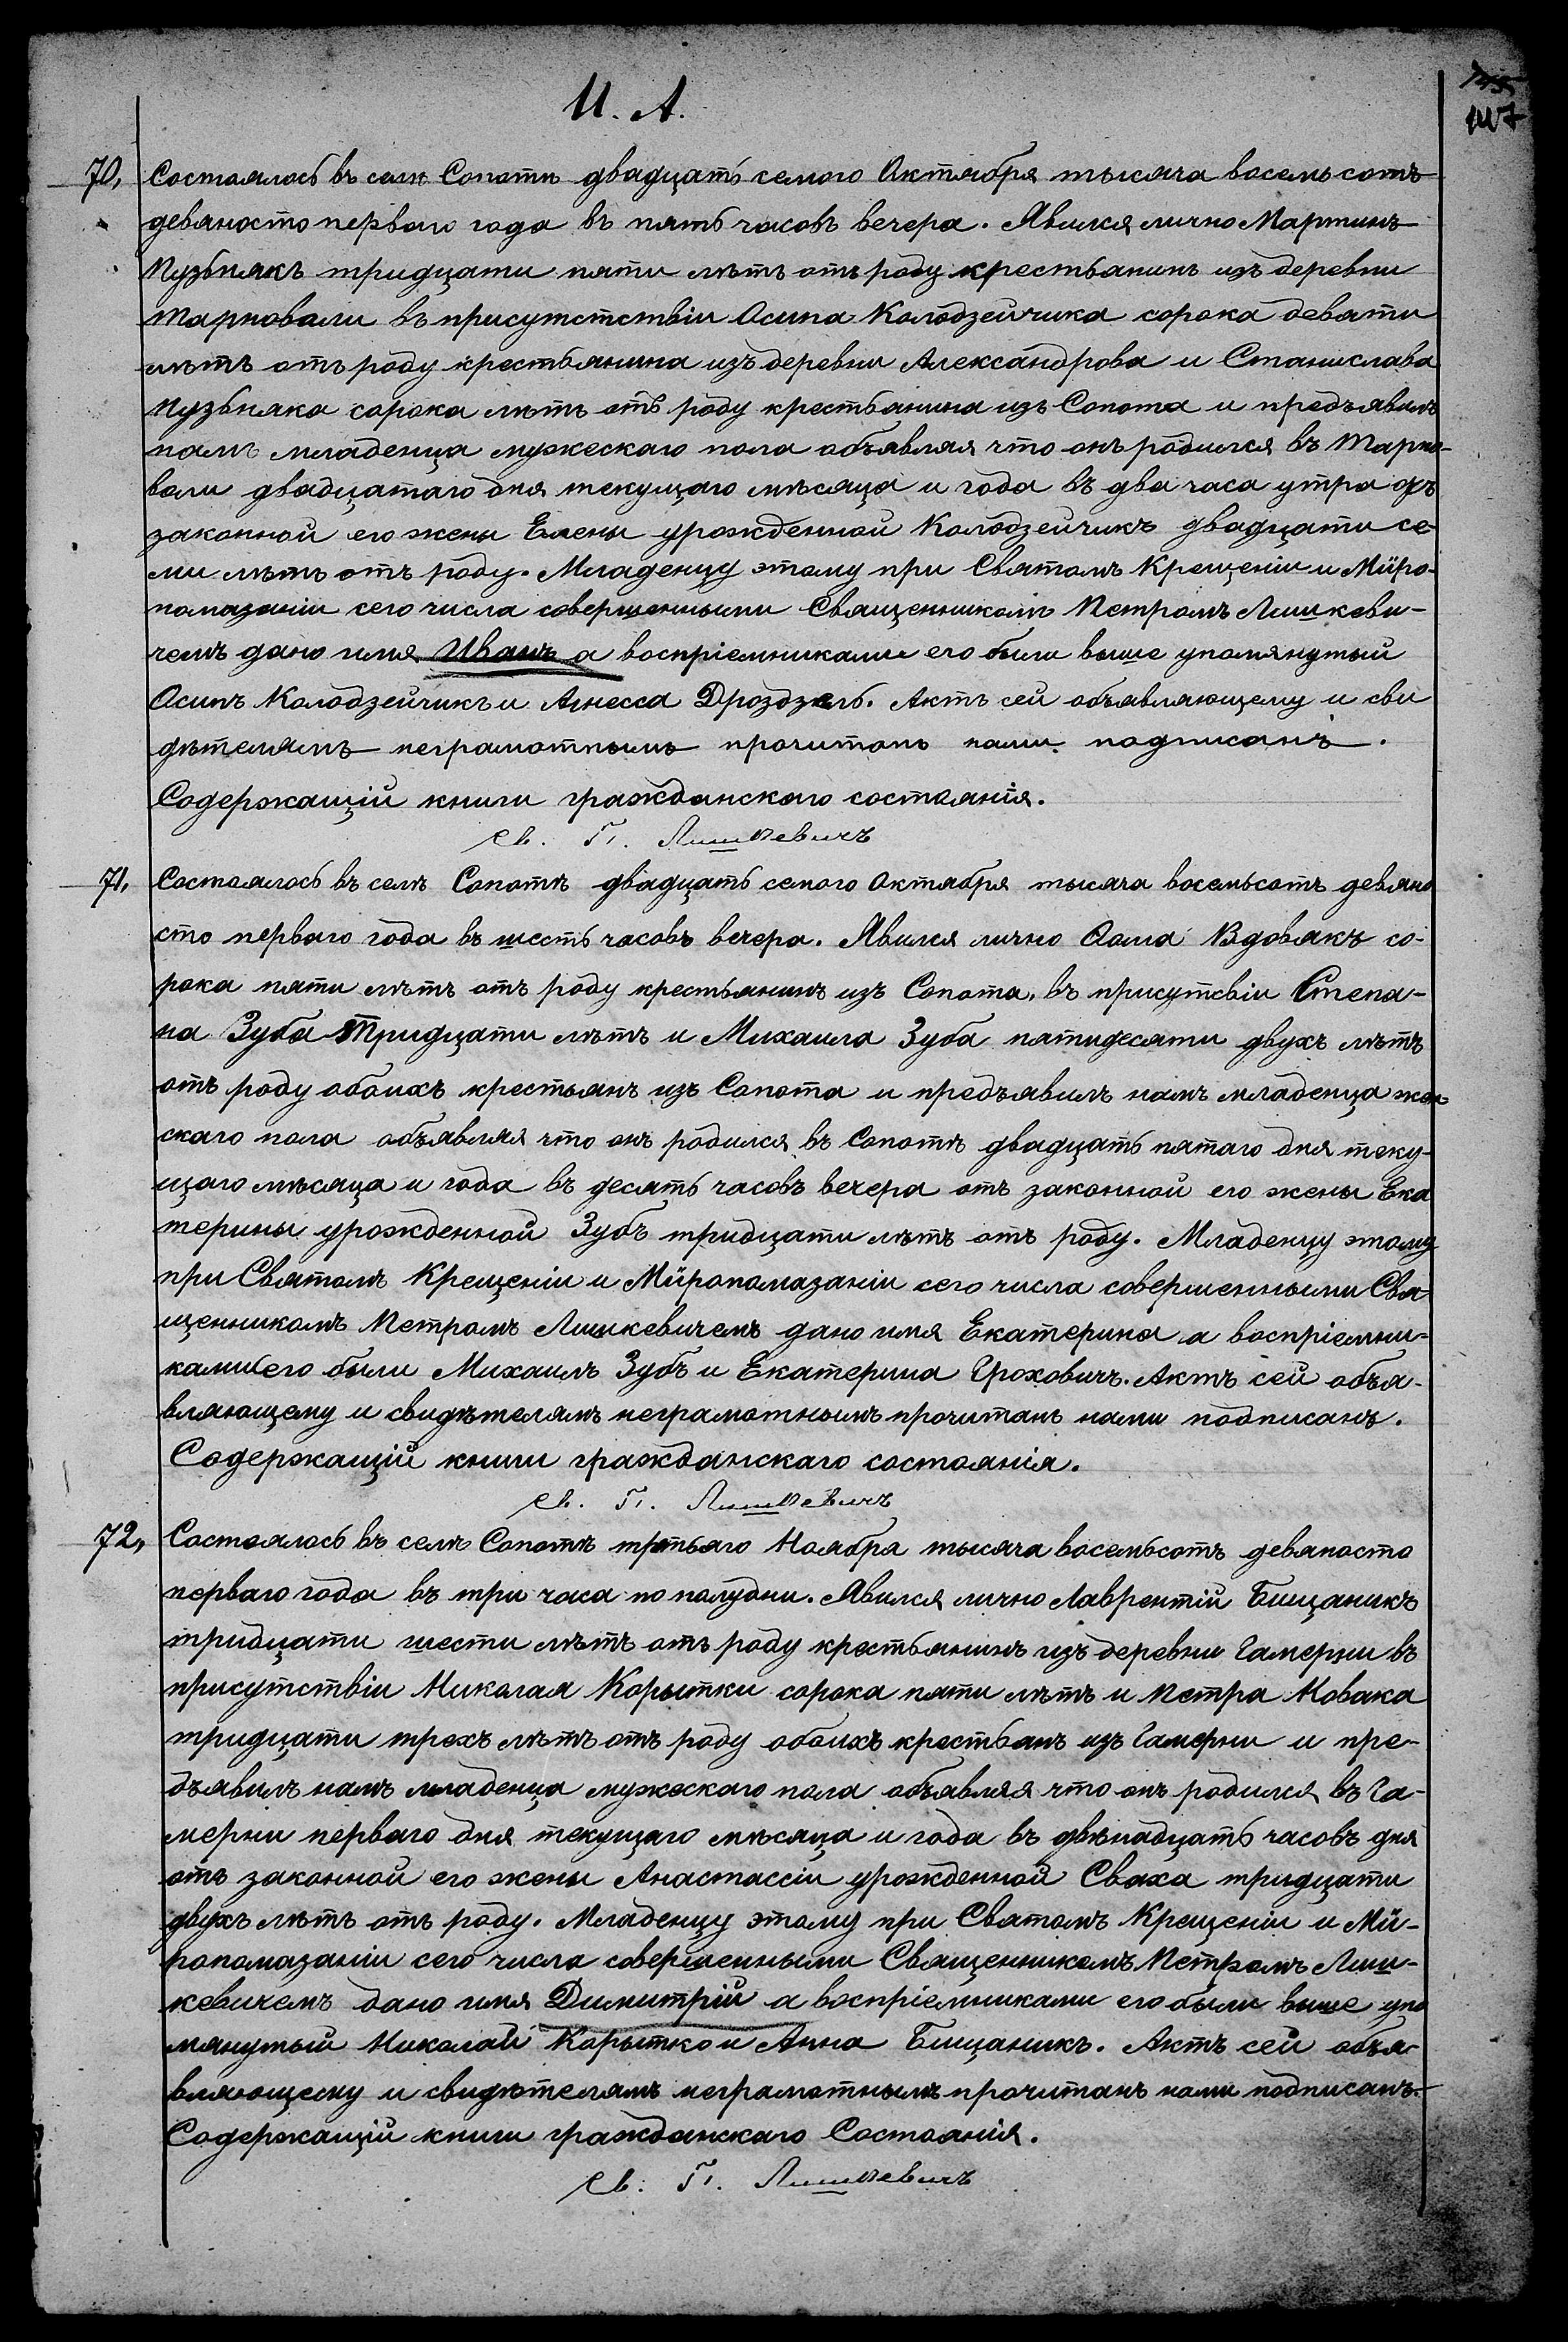 И. А.
117
70, Состоялось въ селѣ Сопотѣ двадцать семого Октября тысяча восемьсотъ
девяносто перваго года въ пять часовъ вечера. Явился лично Мартинъ
Пузьнякъ тридцати пяти лѣтъ отъ роду крестьянинъ изъ деревни
Тарновали въ присутстствіи Осипа Колодзейчика сорока девяти
лѣтъ отъ роду крестьянина изъ деревни Александрова и Станислава
Пузьняка сорока лѣтъ отъ роду крестьянина изъ Сопота и предъявилъ
намъ младенца мужескаго пола объявляя что онъ родился въ Тарно-
вали двадцатаго дня текущаго мѣсяца и года въ два часа утра отъ
законной его жены Елены урожденной Колодзейчикъ двадцати се-
ми лѣтъ отъ роду. Младенцу этому при Святомъ Крещеніи и Мѵро-
помазаніи сего числа совершенными Священникомъ Петромъ Лишкеви-
чемъ дано имя Иванъ а воспріемниками его были выше упомянутый
Осипъ Колодзейчикъ и Агнесса Дроздзель. Актъ сей объявляющему и сви
дѣтелямъ неграмотнымъ прочитанъ нами подписанъ.
Содержащій книги гражданскаго состоянія.
Св. П. Лишкевичъ
71, Состоялось въ селѣ Сопотѣ двадцать семого Октября тысяча восемьсотъ девяно
сто перваго года въ шесть часовъ вечера. Явился лично Ѳома Вдовякъ со-
рока пяти лѣтъ отъ роду крестьянинъ изъ Сопота, въ присутсвіи Степа-
на Зуба тридцати лѣтъ и Михаила Зуба пятидесяти двухъ лѣтъ
отъ роду обоихъ крестьянъ изъ Сопота и предъявилъ намъ младенца жен
скаго пола объявляя что онъ родился въ Сопотѣ двадцать пятаго дня теку-
щаго мѣсяца и года въ десять часовъ вечера отъ законной его жены Ека
терины урожденной Зубъ тридцати лѣтъ отъ роду. Младенцу этому
при Святомъ Крещеніи и Мѵропомазаніи сего числа совершенными Свя
щенникомъ Петромъ Лишкевичемъ дано имя Екатерина а воспріемни-
ками его были Михаилъ Зубъ и Екатерина Гроховичъ. Актъ сей объя-
вляющему и свидѣтелямъ неграмотнымъ прочитанъ нами подписанъ.
Содержащій книги гражданскаго состоянія.
Св. П. Лишкевичъ
72, Состоялось въ селѣ Сопотѣ третьяго Ноября тысяча восемьсотъ девяносто
перваго года въ три часа по полудни. Явился лично Лаврентій Бищаникъ
тридцати шести лѣтъ отъ роду крестьянинъ изъ деревни Гамерни въ
присутствіи Николая Корытки сорока пяти лѣтъ и Петра Новака
тридцати трехъ лѣтъ отъ роду обоихъ крестьянъ изъ Гамерни и пре-
дъявилъ намъ младенца мужескаго пола объявляя что онъ родился въ Га-
мерни перваго дня текущаго мѣсяца и года въ двѣнадцать часовъ дня
отъ законной его жены Анастассіи урожденной Сваха тридцати
двухъ лѣтъ отъ роду. Младенцу этому при Святомъ Крещеніи и Мѵ-
ропомазаніи сего числа совершенными Священникомъ Петромъ Лиш-
кевичемъ дано имя Димитрій а воспріемниками его были выше упо
мянутый Николай Корытко и Анна Бищаникъ. Актъ сей объя-
вляющему и свидѣтелямъ неграмотнымъ прочитанъ нами подписанъ.
Содержащій книги гражданскаго Состоянія.
Св. П. Лишкевичъ